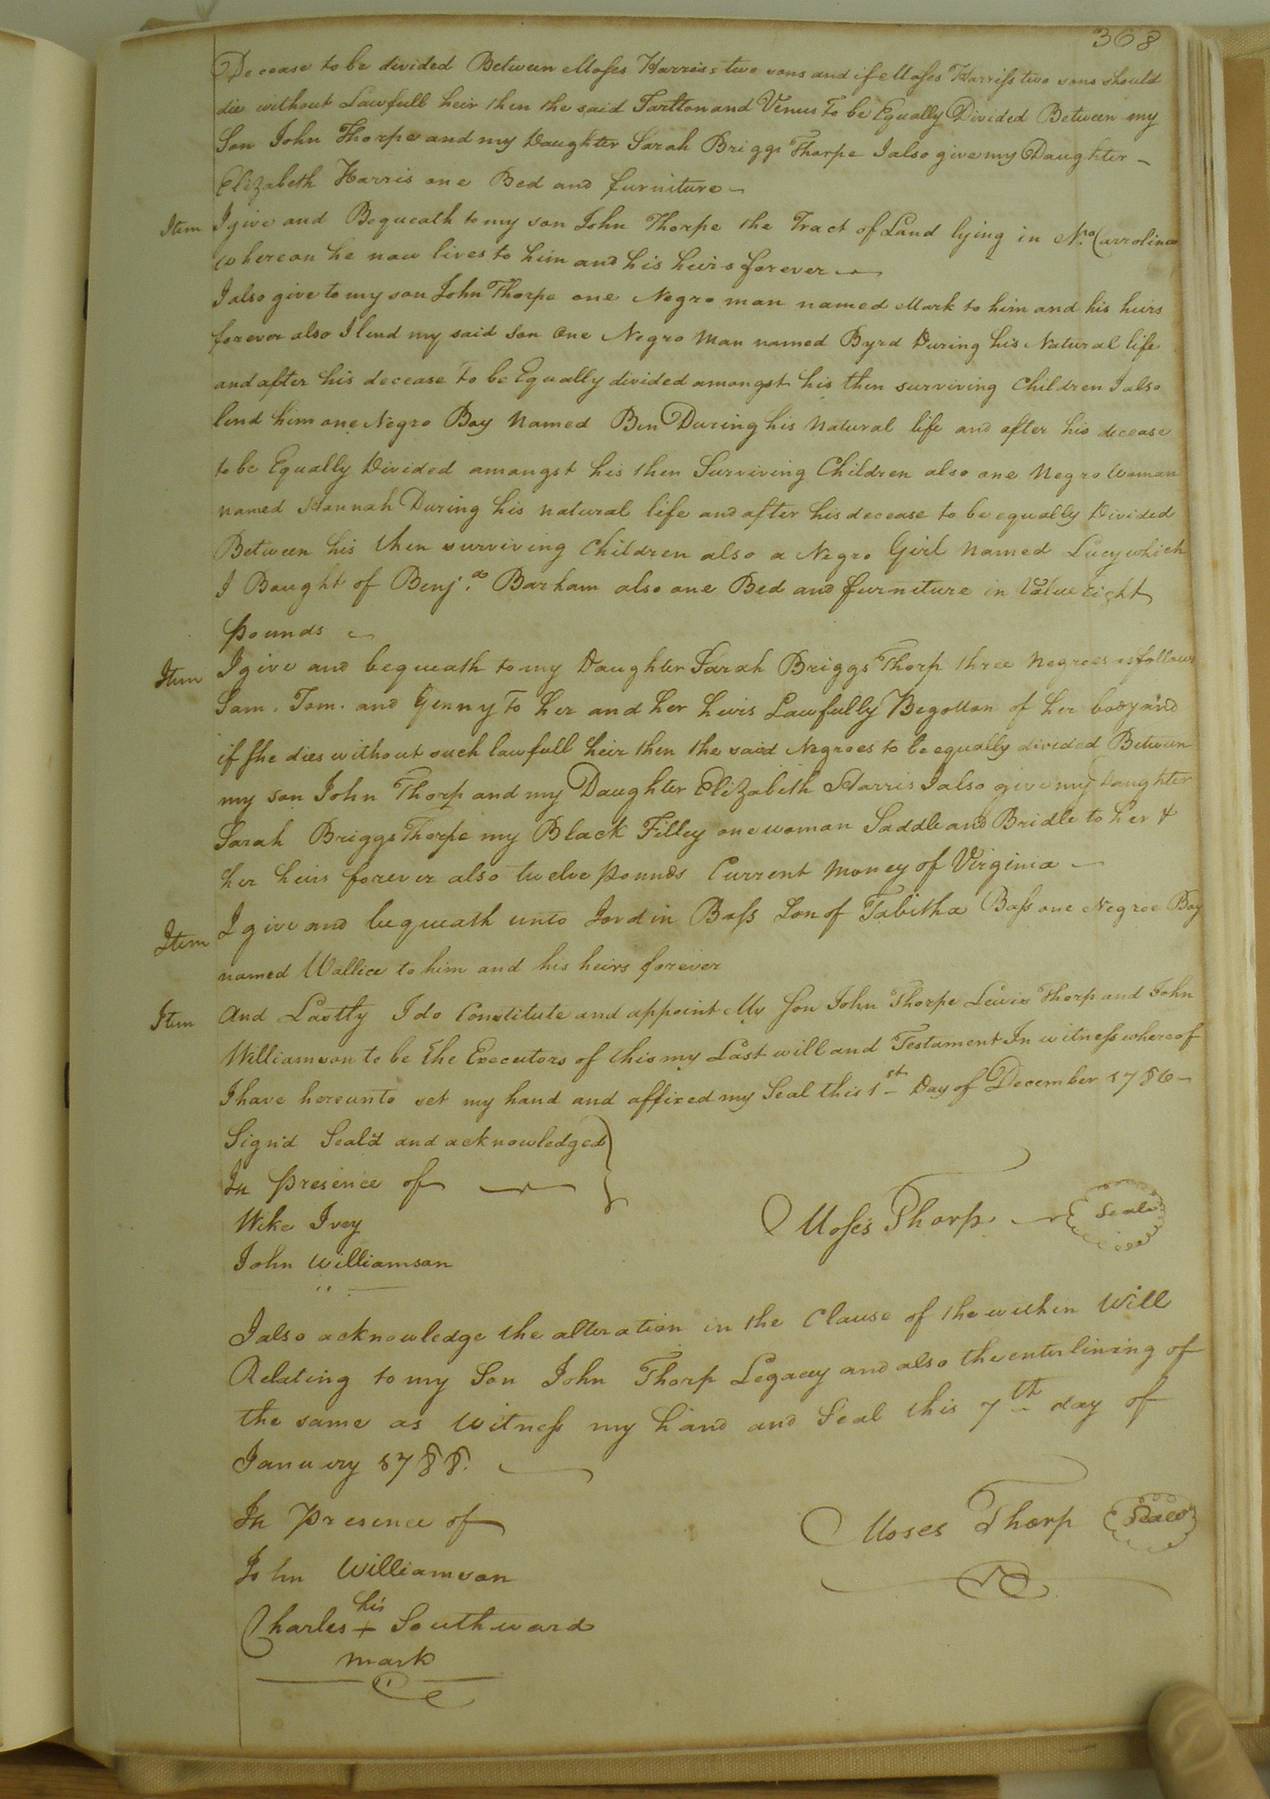 308
Decease to be divided Between Moses Harris's two sons and if Moses Harriss two sons should
die without Lawfull heir then the said Tarlton and Venus To be Equally Divided Between my
Son John Thorpe and my Daughter Sarah Briggs Thorpe I also give my Daughter -
Elizabeth Harris one Bed and furniture -
Item I give and Bequeath to my son John Thorpe the Tract of Land lying in No. Carrolina
whereon he now lives to him and his heirs forever
I also give to my son John Thorpe one Negro man named Mark to him and his heirs
forever also I lend my said son One Negro Man named Byrd During his Natural life
and after his decease To be Equally divided amongst his then surviving Children I also
lend him one Negro Boy Named Ben During his Natural life and after his decease
to be Equally Divided amongst his then Surviving Children also one Negro Woman
named Hannah During his natural life and after his decease to be equally Divided
Between his then surviving Children also a Negro Girl Named Lucy which
I Bought of Benja. Barham also one Bed and furniture in Value Eight
pounds
Item I give and bequeath to my Daughter Sarah Briggs Thorp three Negroes as follows
Sam. Tom. and Genny To her and her heirs Lawfully Begotten of her body and
if She dies without such lawfull heir then the said Negroes to be equally divided Between
my son John Thorp and my Daughter Elizabeth Harris I also give my Daughter
Sarah Briggs Thorpe my Black Filley one woman Saddle and Bridle to her &
her heirs forever also twelve pounds Current Money of Virginia -
Item I give and bequeath unto Jordin Bass Son of Tabitha Bass one Negroe Boy
named Wallice to him and his heirs forever
Item And Lastly I do Constitute and appoint My Son John Thorpe Lewis Thorp and John
Williamson to be the Executors of this my Last will and Testament In witness whereof
I have hereunto set my hand and affixed my Seal this 1st Day of December 1786 -
Sign'd Seal'd and acknowledged
In presence of
Wike Ivey
Moses Thorp Seal
John Williamson
I also acknowledge the alteration in the Clause of the within Will
Relating to my Son John Thorp Legacy and also the enterlining of
the same as Witness my hand and Seal this 7th day of
January 1788.
In Presence of
Moses Thorp Seal
John Williamson
his
Charles + Southward
mark